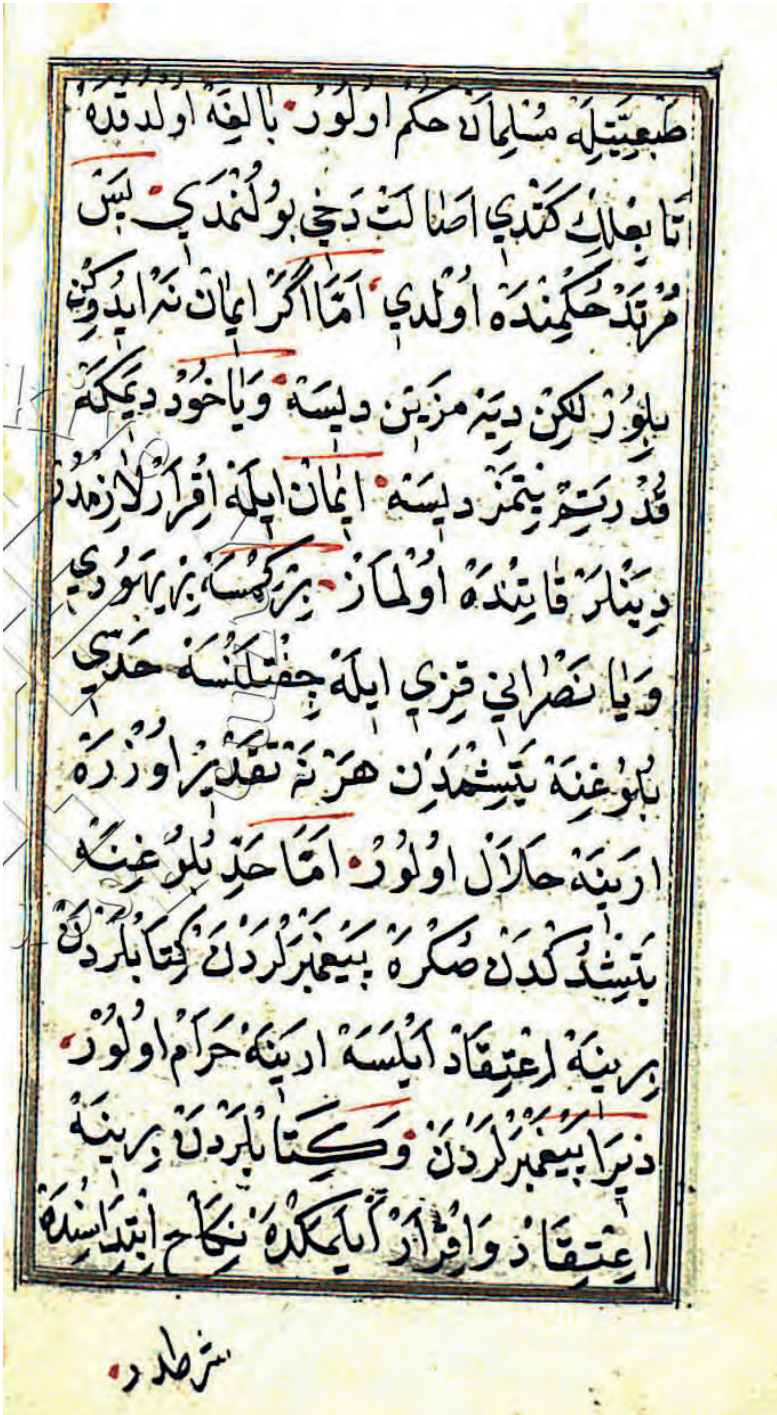 طَبعِيَّتِلَه مُسْلِمَانْ حُكْم اُولُورْ بَالِغَه اُولْدُقْدَه
اَتَا يعلك كَتْدِي اَصَالَتْ دَخِي بُولُنْمَدِي پَسْ
مُرْتَدْ حُكْمِنْدَه اُولْدِي اَمَّا اَكَرْ اِيمَانْ نَه اِيدُوكِنْ
بِلُورُزْ لٰكِنْ دِيَه مَزِيَنْ دِيسَه وَيَاخُودْ دِيمَكَه
قُدْرَتِمْ يَتْمَزْ دِيسَه اِيمَانْ اِيلَه اِقْرَارْ لَازِمْدُرْ
دِينْلَرْ قَاتِنْدَه اُولْمَازْ بِرْ كِمْسَه بِرْ يَهُودِي
وَيَا نَصْرَانِي قِزِي اِيلَه جِفْتلَنْسَه حَدِّي
بُلُوغِنَه يَتِشْمَدِنْ هَرْ نَه تَقْدِيرْ اُوزْرَه
اَرِينَه حَلَالْ اُولُورْ اَمَّا حَدِّ بُلُوغِنَه
يَتِشْدُكْدَنْ صُكْرَه پَيْغَمْبَرْلَرْدَنْ كِتَابْلَرْدَنْ
بِرِينَه اِعْتِقَادْ اَيْلَسَه اَرِينَه حَرَامْ اُولُورْ
زِيرَا پَيْغَمْبَرْلَرْدَنْ وَكِتَابْلَرْدَنْ بِرِينَه
اِعْتِقَادْ وَاِقْرَارْ اَيْلَمَكْدَه نِكَاحْ اِبْتِدَاسِنْدَه
شرطدر